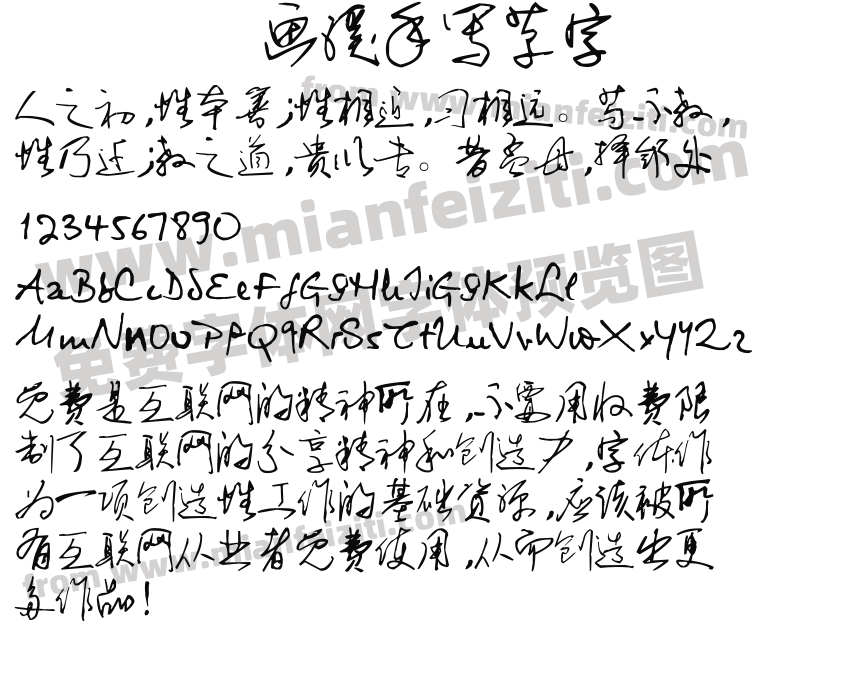 画溪手写草字
人之初,性本善;性相近,习相远。苟不教,
性乃迁;教之道,贵以专。昔孟母,择邻处
1234567890
AaBbCcDdEeFfGgHhIiGgKkLl
MmNnOoPpQqRrSsTtUuVvWwXxYyZz
免费是互联网的精神所在,不要用收费限
制了互联网的分享精神和创造力,字体作
为一项创造性工作的基础资源,应该被所
有互联网从业者免费使用,从而创造出更
多作品!
from www.mianfeiziti.com
www.mianfeiziti.com
免费字体网字体预览图
from www.mianfeiziti.com